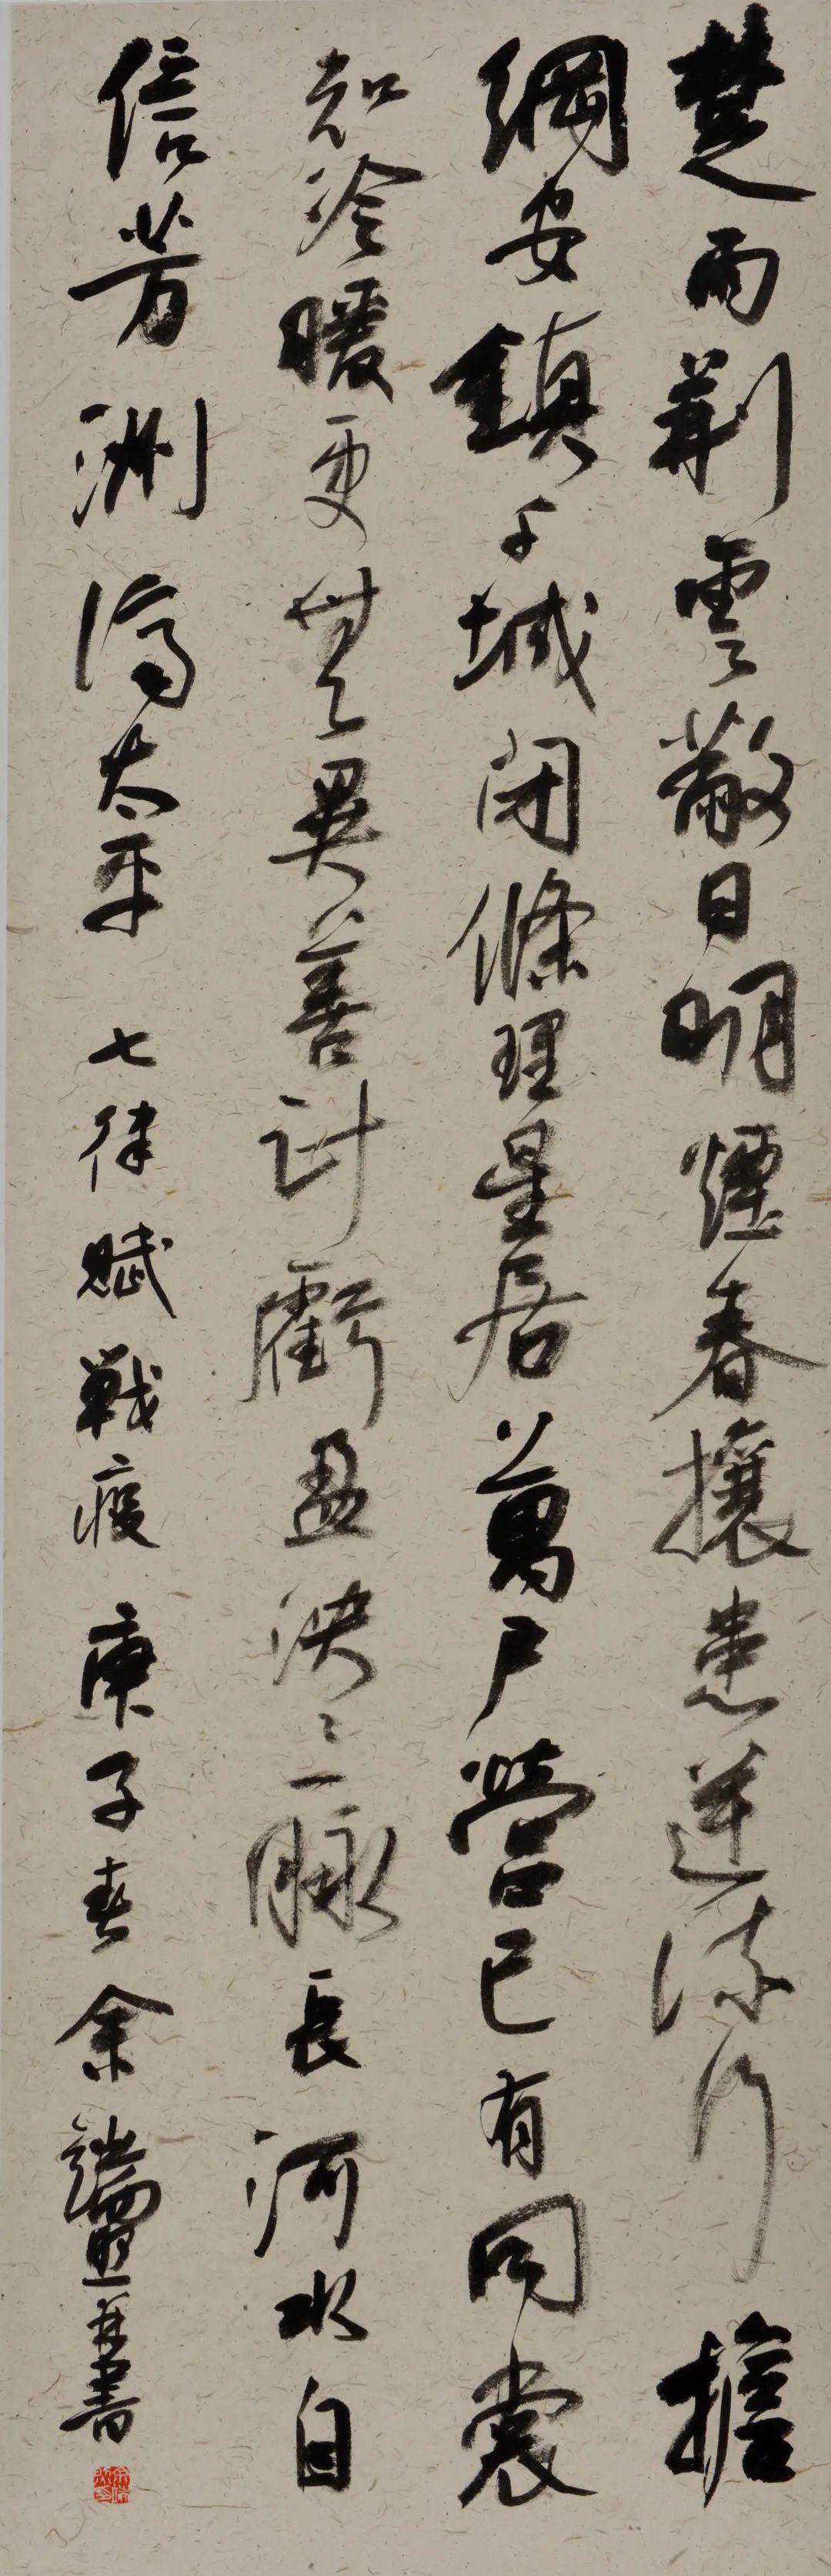 楚雨荊雲蔽日明煙春攘患逆流行擔
綱安鎮千城閉條理星居萬戶營已有同裳
知冷暖更無異善計虧盈泱泱一脈長河水自
信芳洲濟太平 七律賦戰疫 庚子春余書